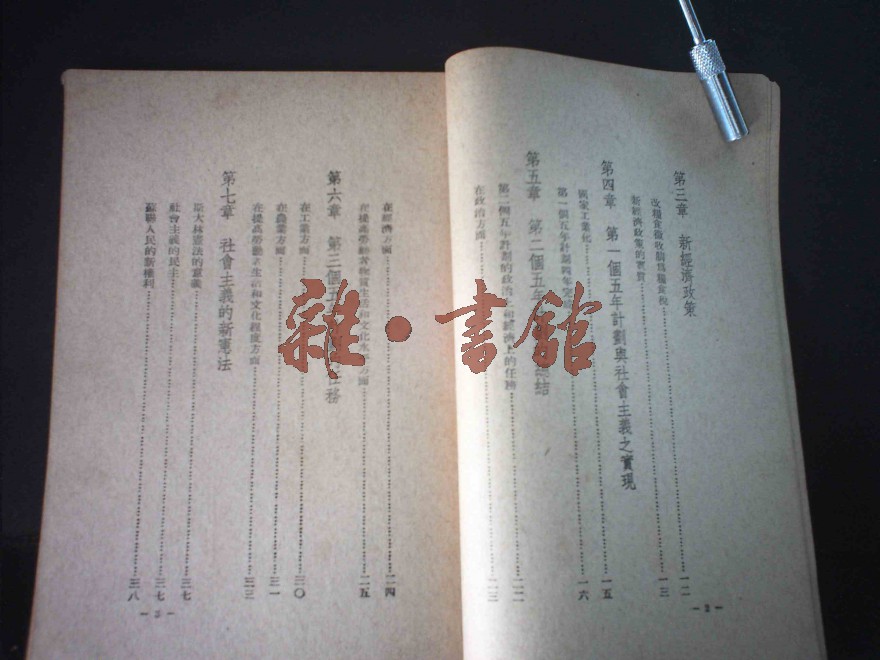 第三章　新經濟政策
改糧食徵收制為糧食稅……一二
新經濟政策的實質……一三
第四章　第一個五年計劃與社會主義之實現……一五
國家工業化……一六
第一個五年計劃四年完
第五章　第二個五年 總結
第二個五年計劃的政治上和經濟上的任務……二二
在政治方面……二三
-2-
在經濟方面……二四
在提高勞動者物質生活和文化水平方面……二五
第六章　第三個五 任務
在工業方面……三〇
在農業方面……三一
在提高勞動者生活和文化程度方面……三三
第七章　社會主義的新憲法
斯大林憲法的意義……三七
社會主義的民主……三七
蘇聯人民的新權利……三八
-3-
雜·書館